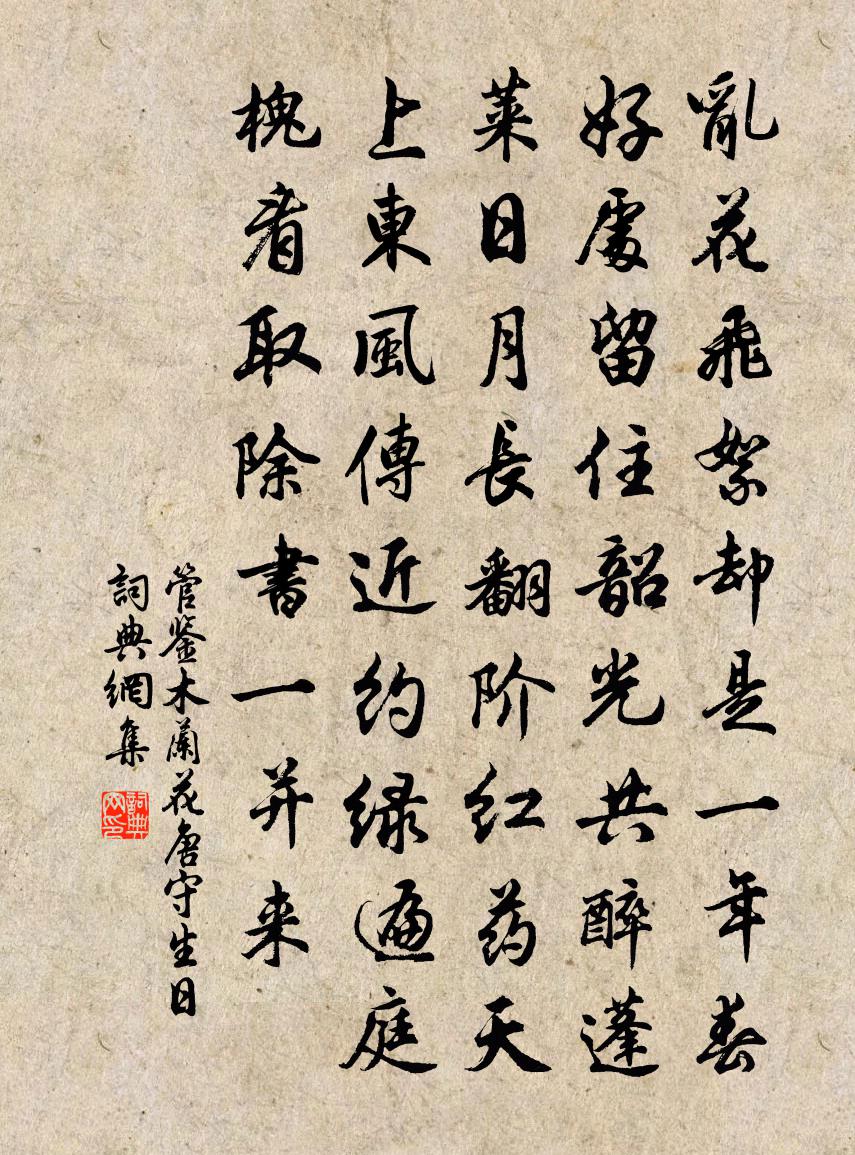 亂花飛絮却是一年春
好處留住韶光共醉蓬
萊日月長翻阶紅药天
上東風傳近約绿遍庭
槐看取除書一并来
管鉴木蘭花唐守生日
詞典網集
詞典网印